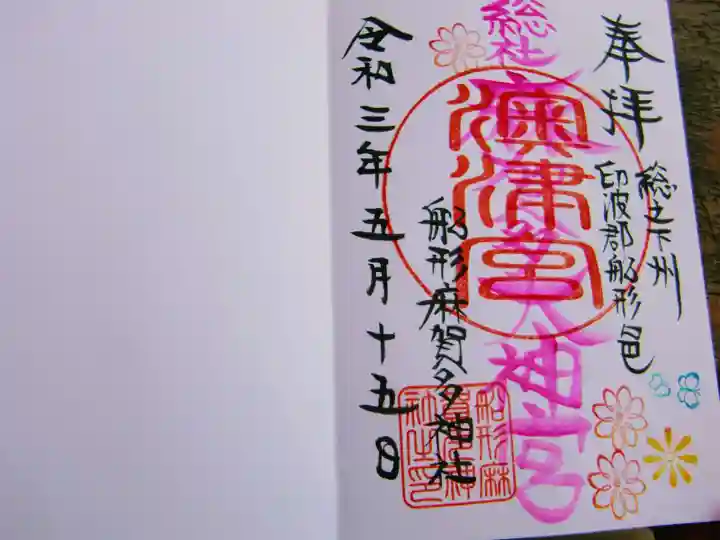 奉拝
総之下州
印波郡船形邑
総社麻賀多大神宮
澳津宮
船形麻賀多神社
船形麻賀多神社之印
令和三年五月十五日